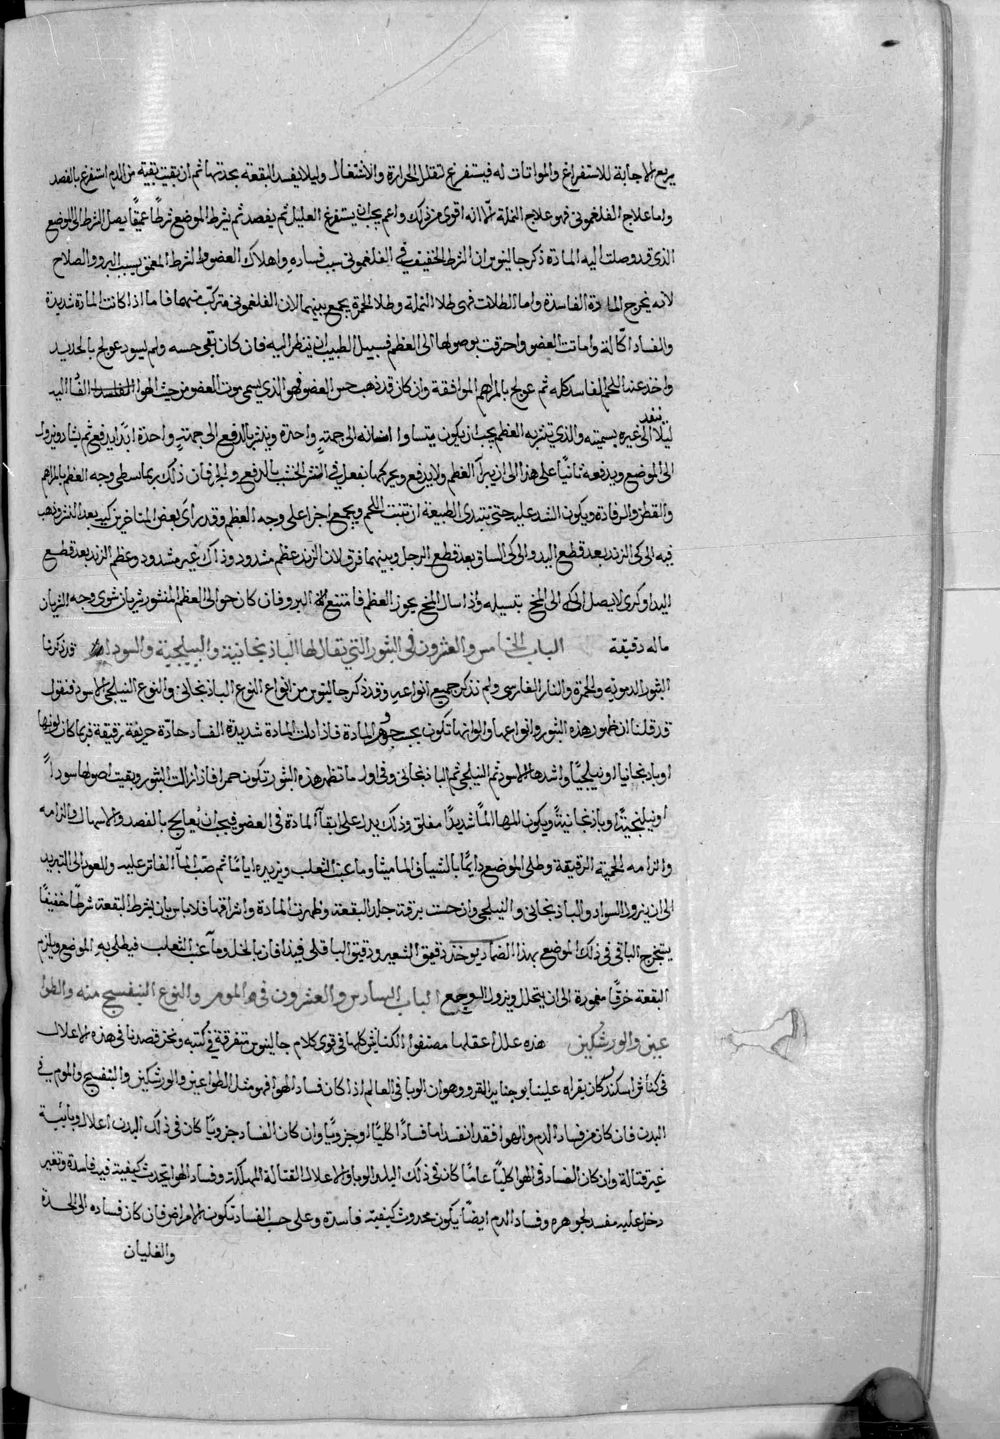 يريع الاجابة للاستفراغ والمواتات له فيستفرغ لتقل الحرارة والاشتعال وليلا يفسد البقعة بحدتها ثم ان بقيت بقية من الدم استفرغ بالفصد
واما علاج الفلغموني فهو علاج النملة الا انه اقوى من ذلك واعم يجب ان يستفرغ العليل ثم يفصد ثم يشرط الموضع شرطا عميقا يصل الشرط الى الموضع
الذي قد وصلت اليه المادة ذكر جالينوس ان الشرط الخفيف في الفلغموني سبب فساده واهلاك العضو والشرط المعمق سبب البرو والصلاح
لانه يخرج المادة الفاسدة واما الطلات فهي طلا النملة وطلا الحمرة يجمع بينهما لان الفلغموني متركب منهما فاما اذا كانت المادة شديدة
والفساد اكالة واماتت العضو واحرقت بوصولها الى العظم فسبيل الطبيب ان ينظر اليه فان كان بقي حسه ولم يسود عولج بالحديد
واخذ عنه اللحم الفاسد كله ثم عولج بالمراهم الموافقة وان كان قد ذهب حس العضو فهو الذي يسمى موت العضو من حيث الهوا الفاسد القا اليه
ليلا ينفد الى غيره بسميته والذي تنشر به العظم يجب ان يكون متساوا اسنانه الى جهة واحدة وينشر بالدفع الى جهة واحدة ابدا يدفع ثم يشاد ويزول
الى الموضع ويدفعه ثانيا على هذا الى ان يبرا العظم ولا يدفع ويحركها نفعل في النشر الخشب بالدفع والجر فان ذلك ربما سطى وجه العظم بالمراهم
والقطن والرفادة ويكون الشد عليه حتى تبتدى الطبيعة ان تنبت اللحم ويجمع اجزا على وجه العظم وقد راى بعض المتاخرين كيه بعد النشر وذهب
فيه الى كي الزند بعد قطع اليد والى كي الساق بعد قطع الرجل وبينهما فرق لان الزند عظم مشدود وذاك غير مشدود وعظم الزند بعد قطع
اليد لو كوى لا يصل الكي الى المخ بتسيله واذا سال المخ يجوز العظم فامتنع البرو فان كان حوالى العظم المنشور شريان شوى وجه الشريان
ماله دقيقة الباب الخامس والعشرون في البثور التي يقال لها الباذنجانية والنيلجية والسودا قد ذكرنا
البثور الدموية والحمرة والنار الفارسى ولم نذكر جميع انواعه وقد ذكر جالينوس من انواع النوع الباذنجاني والنوع النيلجي الاسود فنقول
قد قلنا ان ظهور هذه البثور وانواعها والوانها تكون بحسب جوهر المادة فاذا دلت المادة شديدة الفساد حادة حريفة رقيقة فربما كان لونها
او باذنجانيا او نيلجيا واشدها الاسود ثم النيلجي ثم الباذنجاني وفي اول ما تظهر هذه البثور تكون حمرا فاذا زالت البثور وبقيت اصولها سودا
او نيلنجية او باذنجانية ويكون لمسها الما شديدا مقلق وذلك يدل على ابقا المادة في العضو فيجب ان يعالج بالفصد والاسهال والزامه
والزامه الحمية الرقيقة وطلى الموضع دايما بالشياف الماميثا وما عنب الثعلب وتزيده اياما ثم صب الما الفاتر عليه والعود الى التبريد
الى ان يزول السواد والباذنجاني والنيلجي وان حست برقة جلد البقعة وظهرت المادة واشراقها فلا باس بان يشرط البقعة شرطا خفيفا
يستخرج الباقي في ذلك الموضع بهذا الضماد يوخذ دقيق الشعير ودقيق الباقلى فيذافان بالخل وما عنب الثعلب فيطلى به الموضع ويلزم
البقعة خرقا مغمورة الى ان يتحلل ويزول الوجع الباب السادس والعشرون في الموم والنوع البنفسجي منه والطوا
عين والورشكين هذه علل اغفلها مصنفوا الكنانيش كلها في قوى كلام جالينوس متفرقة في كتبه ونحن قصدنا في هذه الاعلال
في كناش اسكندر كان يقراه علينا بوجنا ير القرو وهو ان الوبا في العالم اذا كان فساد الهوا فهو مثل الطواعين والورشكين والبنفسج والموم في
البدن فان كان من فساد الدم والهوا فقد انفسد اما فسادا كليا او جزويا وان كان الفساد جزويا كان في ذلك البدن اعلال وبائية
غير قتالة وان كان الفساد في الهوا كليا عاما كان في ذلك البلد الوبا والاعلال القتالة المهلكة وفساد الهوا تحدث كيفية فيه فاسدة وتغير
دخل عليه مفسد لجوهره وفساد الدم ايضا يكون بحدوث كيفية فاسدة وعلى حسب الفساد تكون الامراض فان كان فساده الى الحدة
والغليان